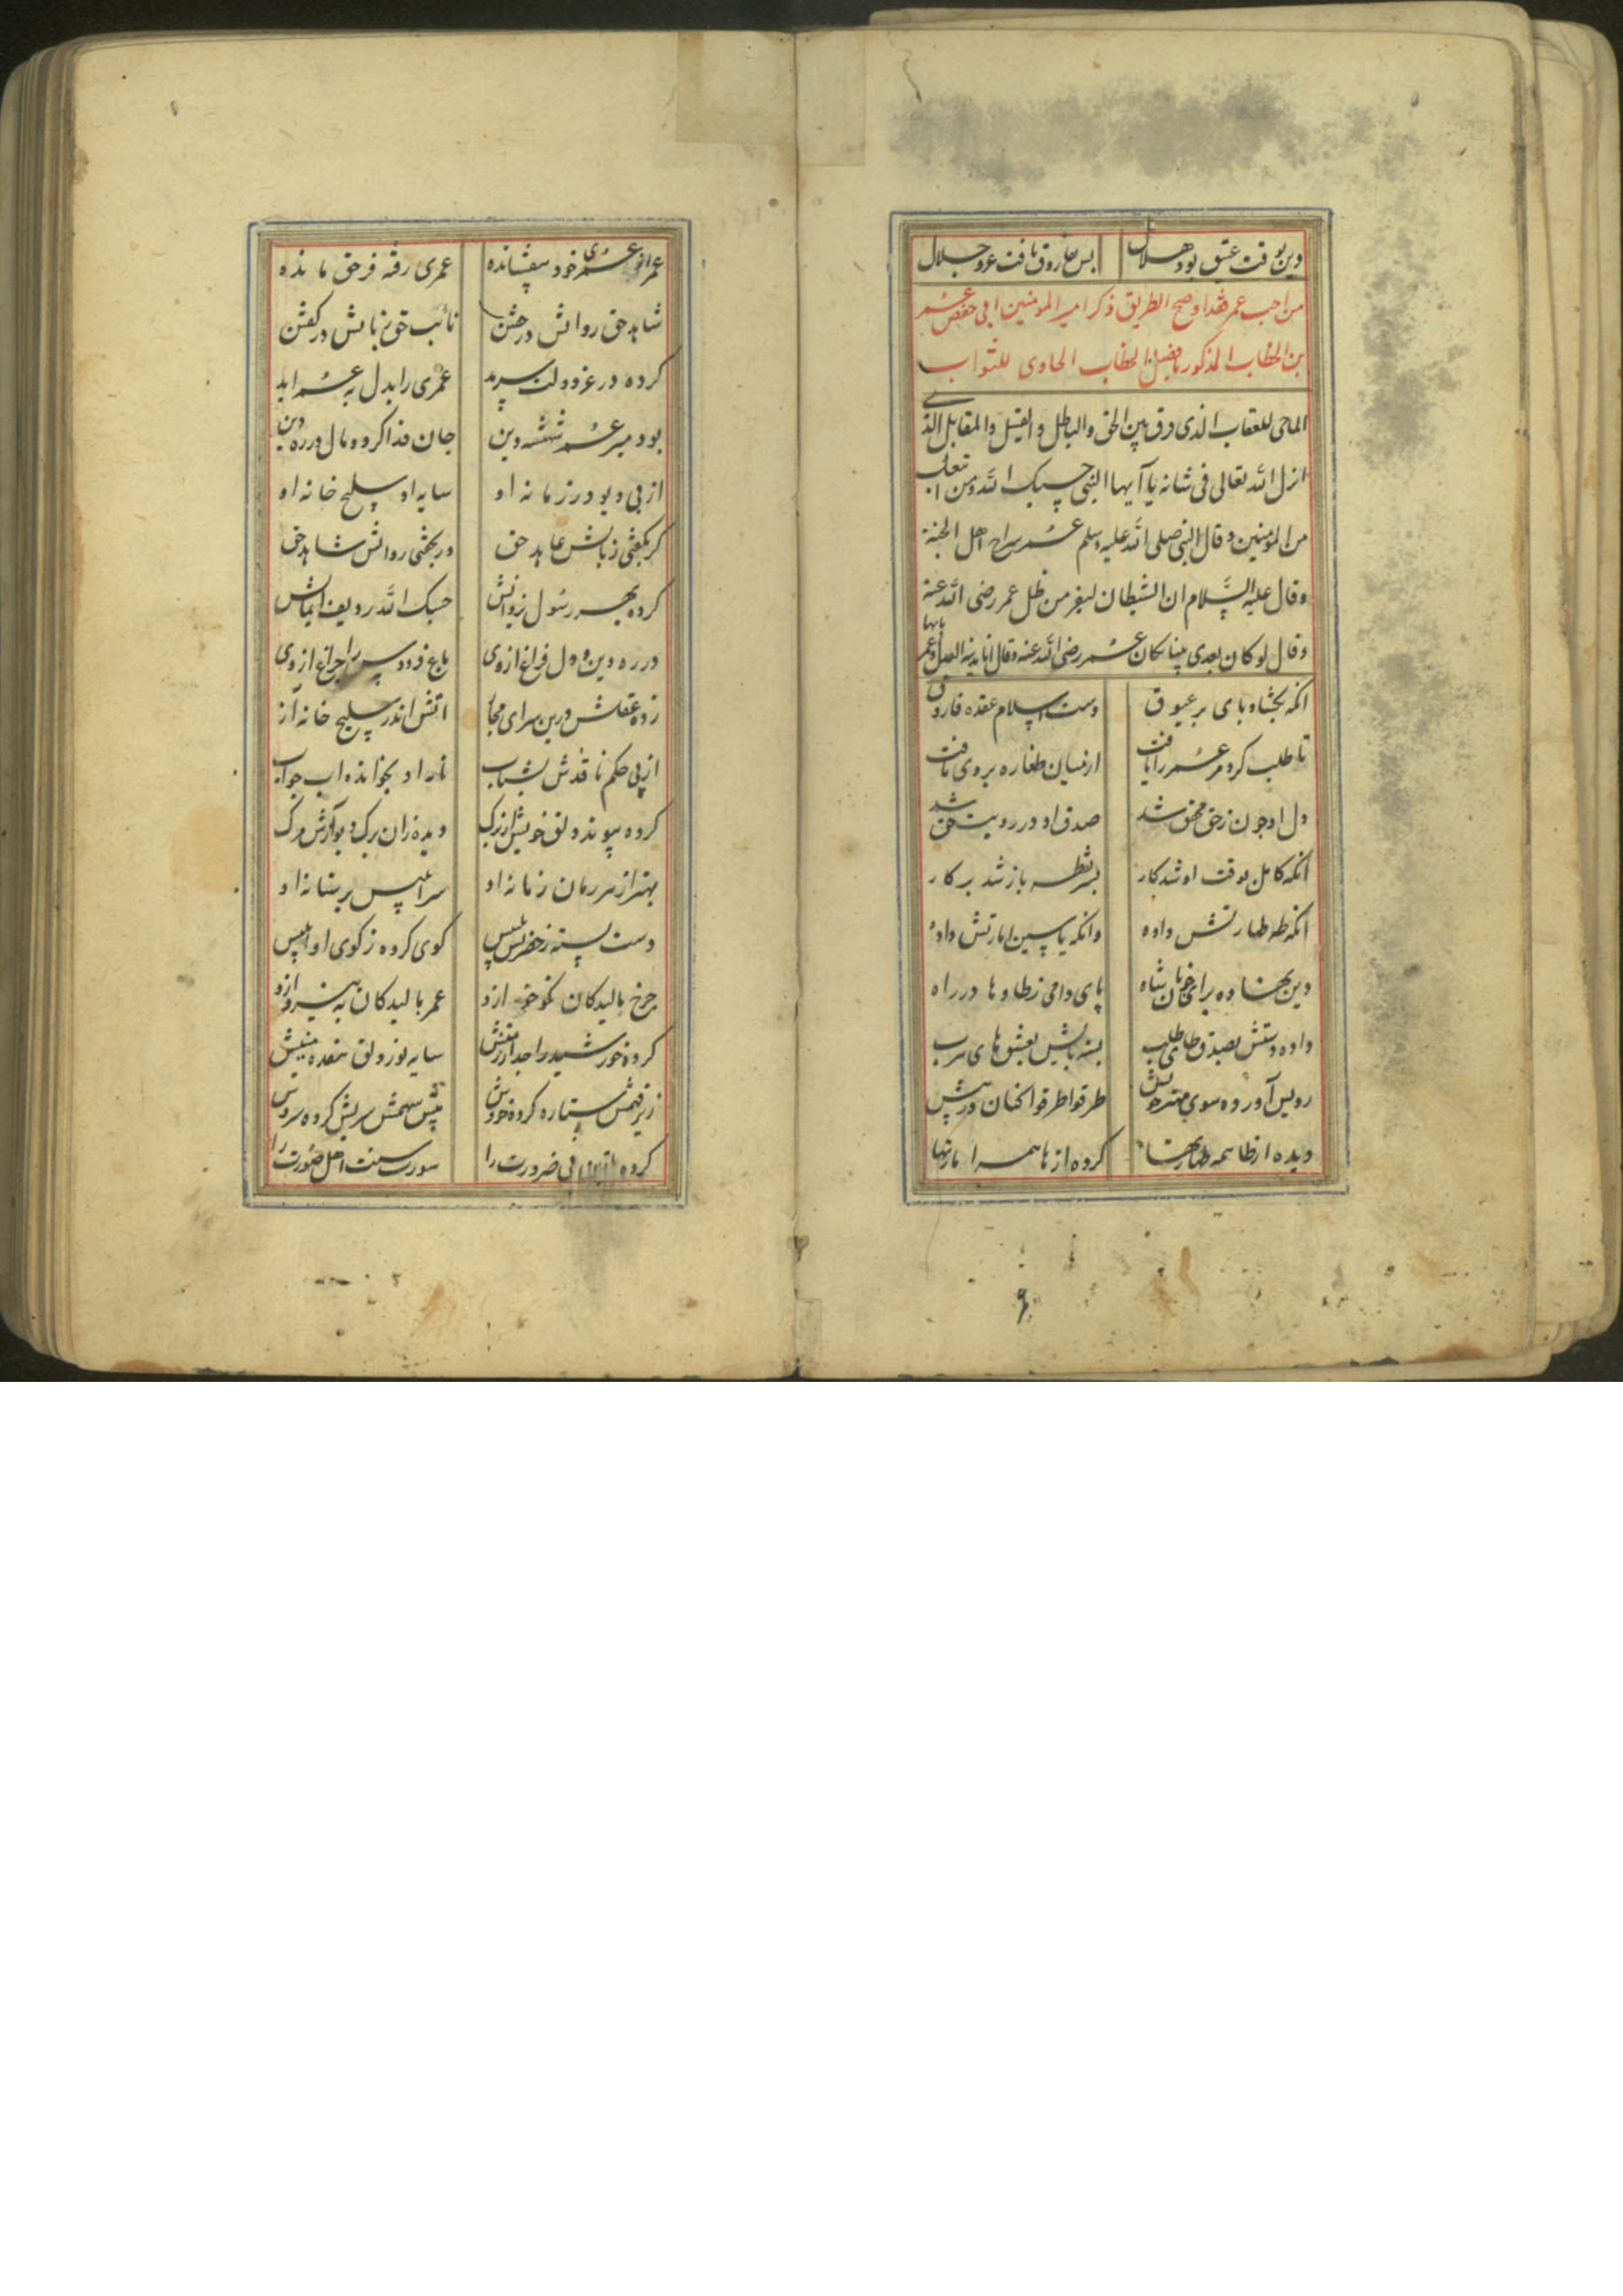 دین بوقت عتیق بود هلال پس بفاروق یافت عز و جلال
من احب عمر فقد اوضح الطریق ذکر امیر المومنین ابی حفص عمر
بن الخطاب المذکور بفضل الخطاب الحاوی للثواب
الماحی للعقاب الذی فرق بین الحق والباطل و القیل والمقابل الذی
انزل الله تعالی فی شانه یا آیها النبی حسبک الله و من اتبعک
من المومنین و قال النبی صلی الله علیه وسلم عمر سراج اهل الجنة
وقال علیه السلام ان الشیطان لیفر من ظل عمر رضی الله عنه
وقال لو کان بعدی نبیا لکان عمر رضی الله عنه و قال انا مدینة العدل و عمر بابها
انکه بخشاد پای بر عیوق دست اسلام عقده فاروق
تا طلب کرد مر عمر را یافت از میان طغاره بر وی تافت
دل او چون زحق محقق شد صدق او در رویت حق شد
انکه کامل بوقت او شد کار بسر نقطه باز شد پرکار
انکه طه طهارتش داده وانکه یاسین امارتش داده
دین بهناده برای شاه پای دامی ز طا و ها در راه
داده دستش بصدق طای طلب بسته پایش بعشق های هرب
رویش آورده سوی مهتر خویش طرقوا طرقوا کنان در پیش
دیده از طا همه طهارتها کرده از ها همه امارتها
عمر از عمری خود بیفشانده عمری رفته فر حق مانده
شاهد حق روانش در خفتن نائب حق زبانش در گفتن
کرده در عز و دولت سرمد عمری را بدل به عمر ابد
بود میر عمر شهنشه دین جان فدا کرد و مال در ره دین
از پی دیو در زمانه او سایه او سلیح خانه او
گر بگفتی زبانش عابد حق ور بخفتی روانش شاهد حق
کرده بهر رسول زوانش حسبک الله ردیف ایمانش
در ره دین و دل فراغ از وی باغ فردوس را چراغ از وی
زده عقلش درین سرای مجاز اتش اندر سلیح خانه آز
از پی حکم نافذش بشتاب نامه او بخوانده اب جواب
کرده پیوند دلق خویش از برگ دیده زان برگ دیو آزش مرگ
بهتر از هر زمان زمانه او سر ابلیس بر ستانه او
دست بسته ز خفرش تلبیس کوی کرده ز کوی او ابلیس
چرخ بالیدکان نکو خو ازو عمر بالیدکان به نیرو ازو
کرده خورشید را جدا ز منش سایه نور دلق هفده منیش
زیر فهمش ستاره کرده خروش پیش سهمش سریش کرده سروش
کرده بی ضرورت را سورت سنت اهل صورت را